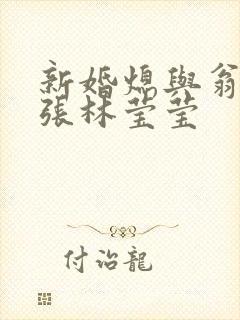 新婚媳與翁
張林莹莹
付治龍